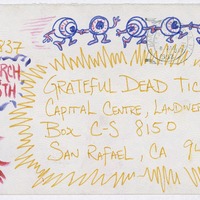 837
GRATEFUL DEAD TIC
CAPITAL CENTRE, LANDOVER
BOX C-S 8150
SAN RAFAEL, CA 94
ARCH